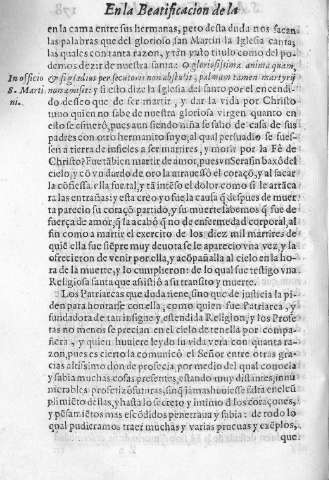 En la Beatificacion de la
en la cama entre sus hermanas, pero desta duda nos sacan
las palabras que del glorioso san Martin la Iglesia canta,
las quales con tanta razon, y tan justo titulo como del po
demos dezir de nuestra santa: O gloriosissima anima quam,
In officio
S. Marti
ni.
& si gladius persecutoris non abstulit, palmam tamen martyrij
non amisit: y si esto dize la Iglesia del santo por el encendi-
do desseo que de ser martir, y dar la vida por Christo
tuuo quien no sabe de nuestra gloriosa virgen quanto en
esto se esmerò, pues aun siendo niña se salio de casa de sus
padres con otro hermanito suyo, al qual persuadio se fues-
sen a tierra de infieles a ser martires, y morir por la Fè de
Christo? Fue tābien martir de amor, pues vn Serafin baxò del
cielo, y cō vn dardo de oro la atrauessò el coraçō, y al sacar
la cōfiessa ella fue tal, y tā intēso el dolor como si le arrāca
ra las entrañas, y esta creo yo fue la causa q̄ despues de muer
ta parecio su coraçō partido, y su muerte sabemos q̄ fue de
fuerça de amor, q̄ la acabò q̄ no de enfermedad corporal, al
fin como a martir el exercito de los diez mil martires de
quiē ella fue siēpre muy deuota se le aparecio vna vez, y la
ofrecieron de venir por ella, y acōpañalla al cielo en la ho-
ra de la muerte, y lo cumplieron: de lo qual fue testigo vna
Religiosa santa que assistiò a su transito y muerte.
Los Patriarcas que duda tiene, sino que de justicia la pi-
den para honrarse con ella, como quien fue Patriarca, y
fundadora de tan insigne y estendida Religion, y los Profe
tas no menos se precian en el cielo de tenella por compa-
ñera, y quien huuiere leydo su vida vera con quanta ra-
zon, pues es cierto la comunicò el Señor entre otras gra-
cias altissimo don de profecia, por medio del qual conocia
y sabia muchas cosas presentes, estando muy distantes, innu
merables profetizò futuras, sin q̄ jamas huuiesse falta en el cū
plimiēto dellas, y hasta lo secreto y intimo de los coraçones,
y pēsamiētos mas escōdidos penetraua y sabia: de todo lo
qual pudieramos traer muchas y varias prueuas y exēplos,
que